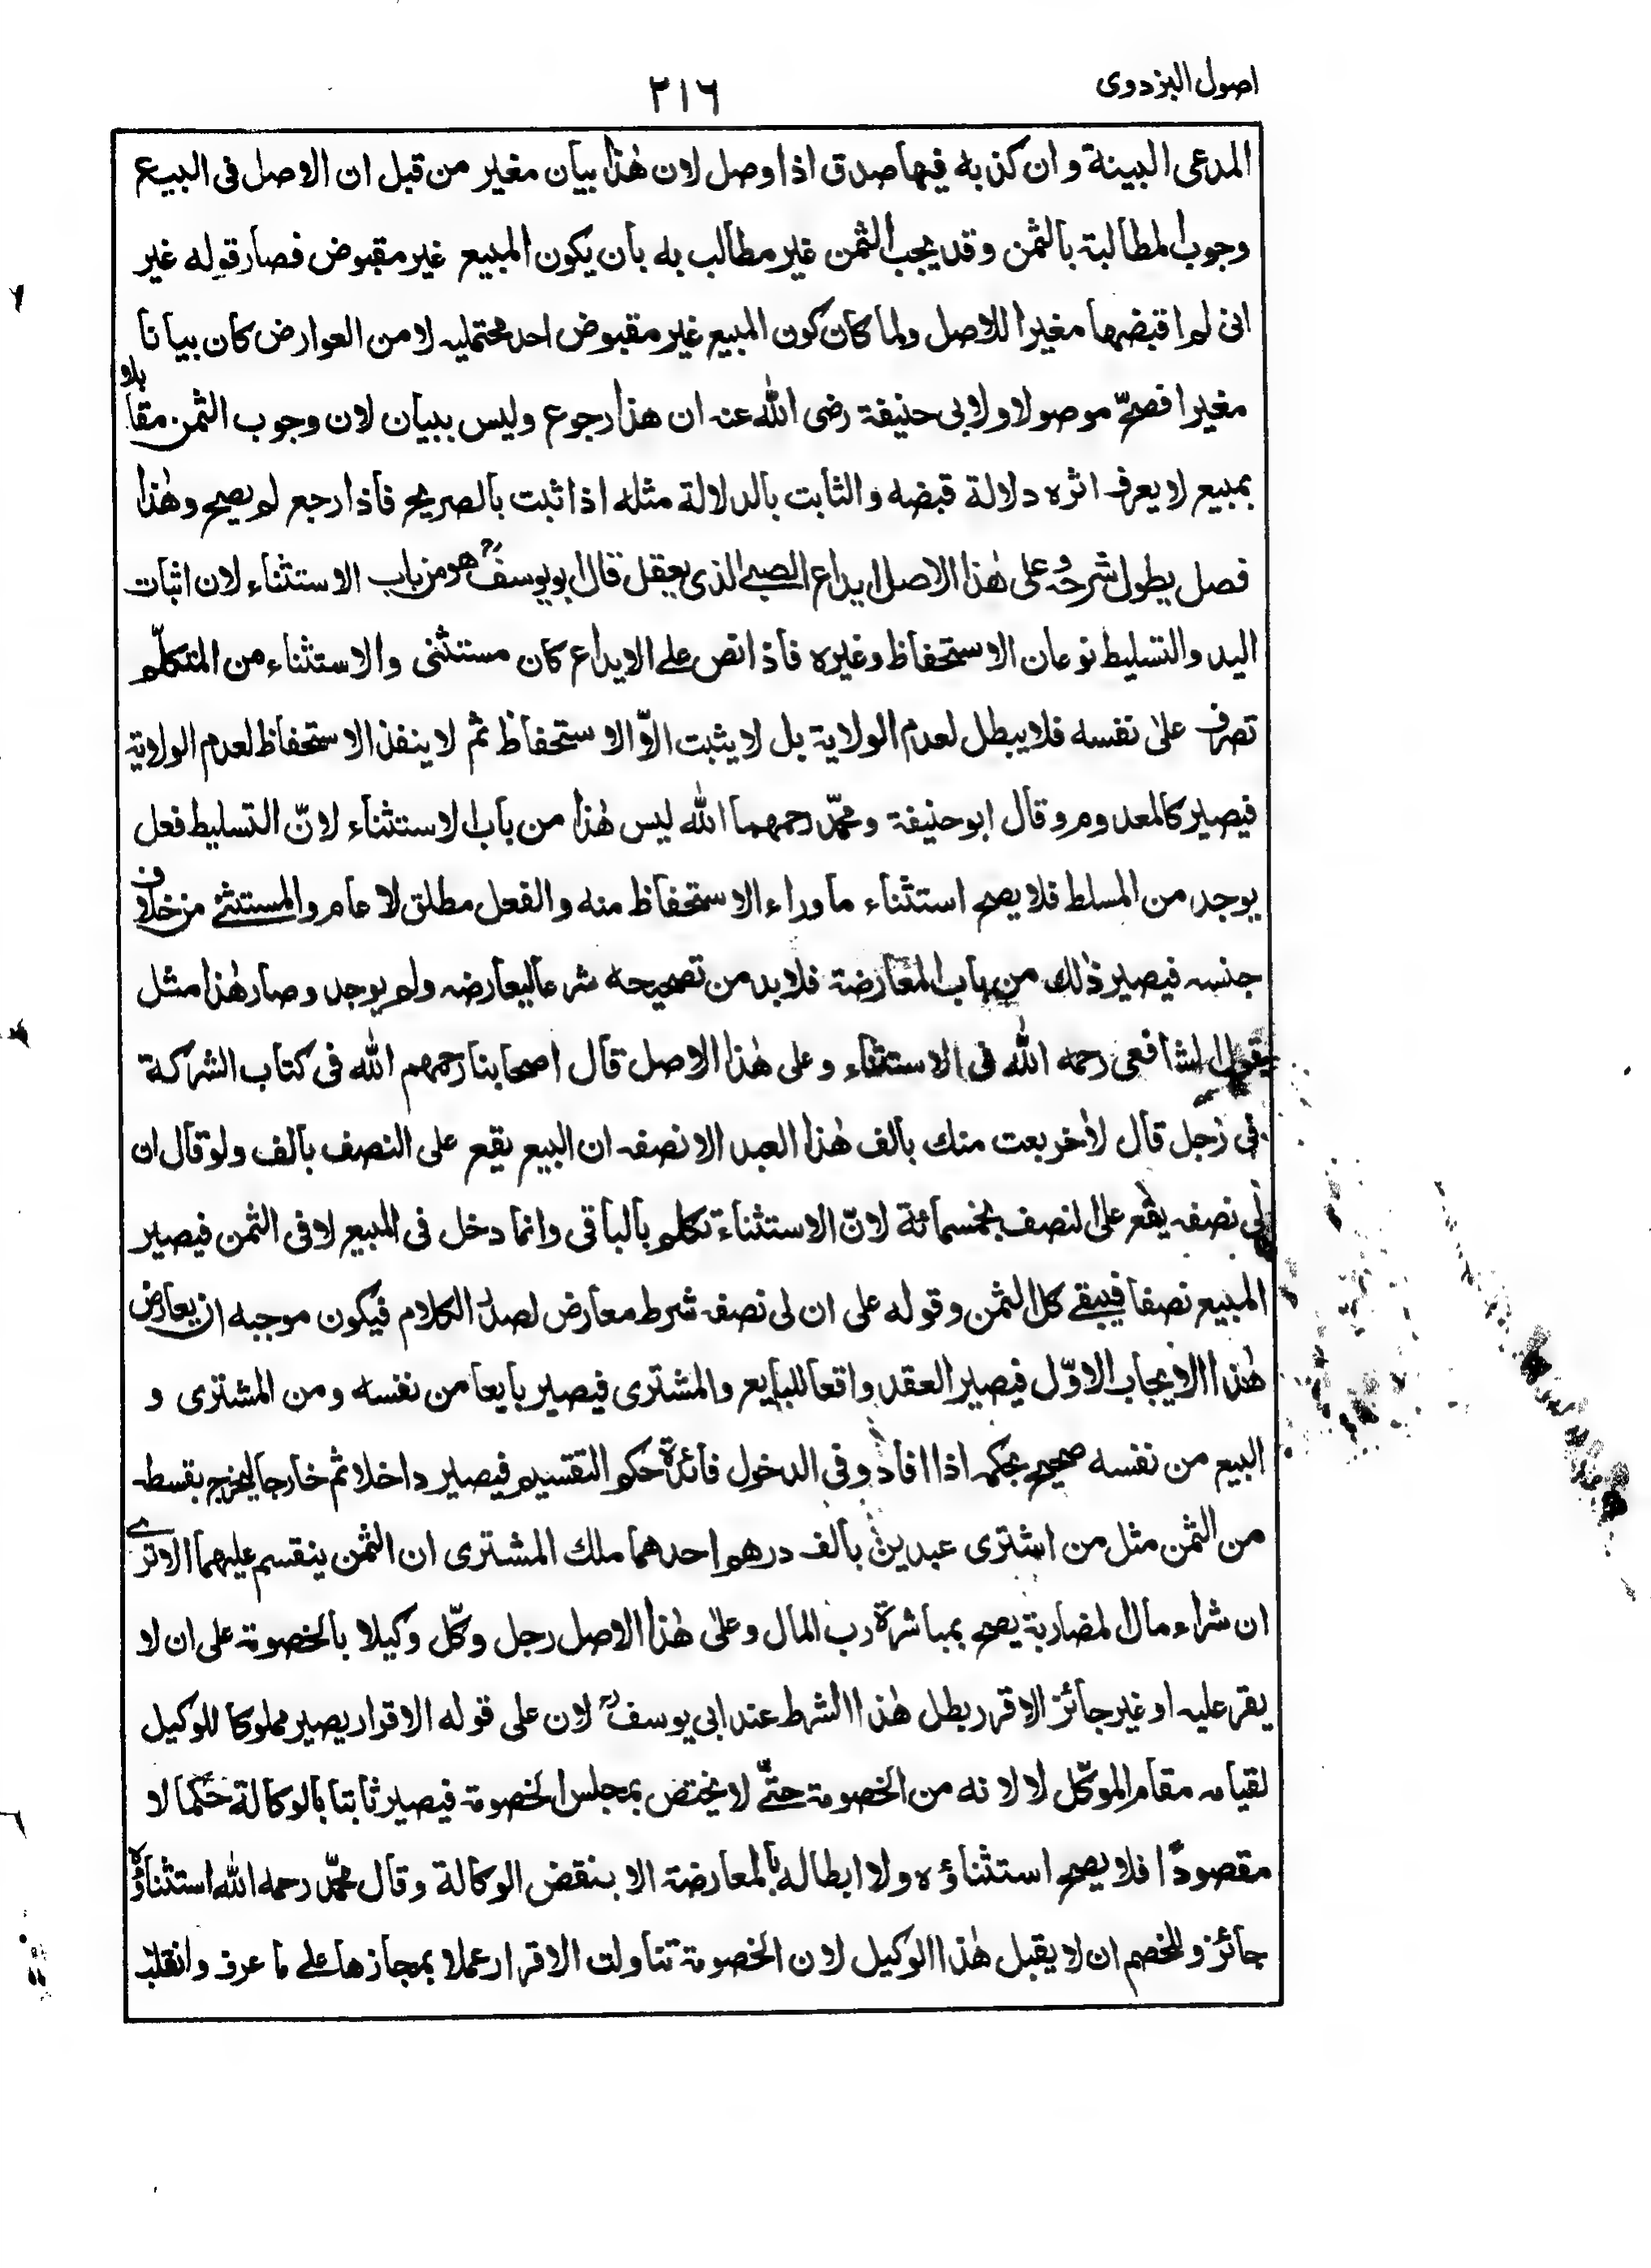 اصول البزدوى
٢١٦
المدعى البينة وان كذبه فيها صدق اذا وصل لان هٰذا بيان مغير من قبل ان الاصل فى البيع
وجوب المطالبة بالثمن وقد يجب الثمن غير مطالب به بان يكون المبيع غير مقبوض فصار قوله غير
انى لم اقبضها مغيرا للاصل ولما كان كون المبيع غير مقبوض احد محتمليه لا من العوارض كان بيانا
مغيرا فصحّ موصولا ولابى حنيفة رضى الله عنه ان هذا رجوع وليس ببيان لان وجوب الثمن مقابلا
بمبيع لا يعرف اثره دلالة قبضه والثابت بالدلالة مثله اذا ثبت بالصريح فاذا رجع لم يصح وهٰذا
فصل يطول شرحُه وعلى هٰذا الاصل ايداع الصبى الذى يعقل قال ابو يوسفؒ هو من باب الاستثناء لان اثبات
اليد والتسليط نوعان الاستحفاظ وغيره فاذا نص على الايداع كان مستثنى والاستثناء من المتكلّم
تصرف علىٰ نفسه فلا يبطل لعدم الولاية بل لا يثبت الاّ الاستحفاظ ثم لا ينفذ الاستحفاظ لعدم الولاية
فيصير كالمعدوم وقال ابو حنيفة ومحمّد رحمهما الله ليس هٰذا من باب الاستثناء لانّ التسليط فعل
يوجد من المسلط فلا يصح استثناء ماوراء الاستحفاظ منه والفعل مطلق لا عام والمستثنى من خلاف
جنسه فيصير ذٰلك من باب المعارضة فلا بد من تصحيحه شرعا ليعارضه ولم يوجد وصار هٰذا مثل
يقول الشافعى رحمه الله فى الاستثناء وعلى هٰذا الاصل قال اصحابنا رحمهم الله فى كتاب الشركة
فى رجل قال لأخر بعت منك بالف هٰذا العبد الا نصفه ان البيع يقع على النصف بالف ولو قال ان
لى نصفه يقع على النصف بخمسمائة لانّ الاستثناء تكلم بالباقى وانما دخل فى المبيع لا فى الثمن فيصير
المبيع نصفا فيبقى كل الثمن وقوله على ان لى نصفه شرط معارض لصدر الكلام فيكون موجبه ان يعارض
هٰذا الايجاب الاوّل فيصير العقد واقعا للبايع والمشترى فيصير بايعا من نفسه ومن المشترى و
البيع من نفسه صحيح بحكمه اذا افاد وفى الدخول فائدة حكم التقسيم فيصير داخلا ثم خارجا ليخرج بقسطه
من الثمن مثل من اشترى عبدين بالف درهم احدهما ملك المشترى ان الثمن ينقسم عليهما الا ترى
ان شراء مال المضاربة يصح بمباشرة رب المال وعلىٰ هٰذا الاصل رجل وكّل وكيلا بالخصومة على ان لا
يقر عليه او غير جائز الاقرر بطل هٰذا الشرط عند ابى يوسفؒ لان على قوله الاقرار يصير مملوكا للوكيل
لقيامه مقام الموكّل لا لانه من الخصومة حتّى لا يختص بمجلس الخصومة فيصير ثابتا بالوكالة حكما لا
مقصودًا فلا يصح استثناؤه ولا ابطاله بالمعارضة الا بنقض الوكالة وقال محمّد رحمه الله استثناؤه
جائز وللخصم ان لا يقبل هٰذا الوكيل لان الخصومة تناولت الاقرار عملا بمجازها على ما عرف وانقلب